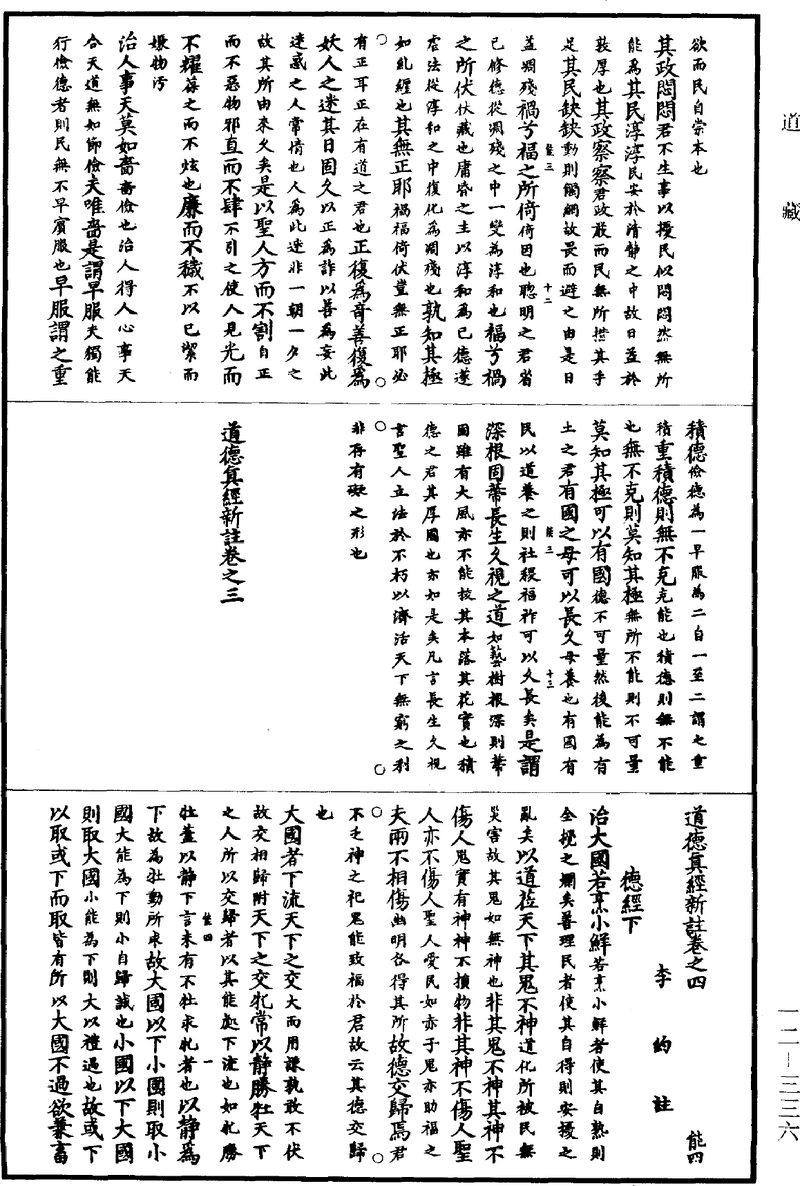 道藏
欲而民自崇本也
其政悶悶君不生事以擾民似悶悶然無所
能為其民淳淳民安於清靜之中故日益於
敦厚也其政察察君政嚴而民無所措其手
足其民缺缺動則觸網故畏而避之由是日
益凋殘禍兮福之所倚倚因也聰明之君省
已修德從凋殘之中一變為淳和也福兮禍
之所伏伏藏也庸昏之主以淳和為已德遂
虐法從淳和之中復化為凋殘也孰知其極
如糺纆也其無正耶禍福倚伏豈無正耶必
有正耳正在有道之君也正復為奇善復為
妖人之迷其日固久以正為詐以善為妄此
迷惑之人常情也人為此迷非一朝一夕之
故其所由來久矣是以聖人方而不割自正
而不惡物邪直而不肆不引之使人見光而
不耀葆之而不炫也廉而不穢不以已絜而
嫌物污
治人事天莫如嗇嗇儉也治人得人心事天
合天道無如節儉夫唯嗇是謂早服夫獨能
行儉德者則民無不早賓服也早服謂之重
積德儉德為一早服為二自一至二謂之重
積重積德則無不克克能也積德則無不能
也無不克則莫知其極無所不能則不可量
莫知其極可以有國德不可量然後能為有
土之君有國之母可以長久母養也有國有
民以道養之則社稷福祚可以久長矣是謂
深根固蔕長生久視之道如藝樹根深則蔕
固雖有大風亦不能拔其本落其花實也積
德之君其厚國也亦如是矣凡言長生久視
言聖人立法於不朽以濟活天下無窮之利
非存有礙之形也
道德真經新註卷之三
道德真經新註卷之四 能四
李約註
德經下
治大國若烹小鮮若烹小鮮者使其自熟則
全撓之爛矣善理民者使其自得則安擾之
亂矣以道莅天下其鬼不神道化所被民無
災害故其鬼如無神也非其鬼不神其神不
傷人鬼實有神神不損物非其神不傷人聖
人亦不傷人聖人愛民如赤子鬼亦助福之
夫兩不相傷幽明各得其所故德交歸焉君
不乏神之祀鬼能致福於君故云其德交歸
也
大國者下流天下之交大而用謙孰敢不伏
故交相歸附天下之交牝常以靜勝牡天下
之人所以交歸者以其能處下流也如牝勝
牡蓋以靜下言未有不牡求牝者也以靜為
下故為牡動所求故大國以下小國則取小
國大能為下則小自歸誠也小國以下大國
則取大國小能為下則大以禮過也故或下
以取或下而取皆有所以大國不過欲兼畜
能三 十二
能三 十三
能四 一
一二—三三六